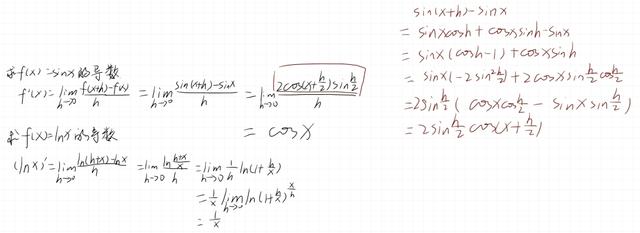 求f(x)=sinx的导数
f'(x)=lim h→0 f(x+h)-f(x)/h = lim h→0 sin(x+h)-sinx/h = lim h→0 2cos(x+h/2)sin h/2/h
= cosx
求f(x)=lnx的导数
(lnx)'=lim h→0 ln(h+x)-lnx/h = lim h→0 ln h+x/x/h = lim h→0 1/h ln(1+h/x)
= 1/x lim h→0 ln(1+h/x)^x/h
= 1/x
sin(x+h)-sinx
= sinxcosh+cosxsinh-sinx
= sinx(cosh-1)+cosxsinh
= sinx(-2sin²h/2)+2cosxsin h/2 cos h/2
=2sin h/2(cosxcos h/2 - sinxsin h/2)
=2sin h/2 cos(x+h/2)